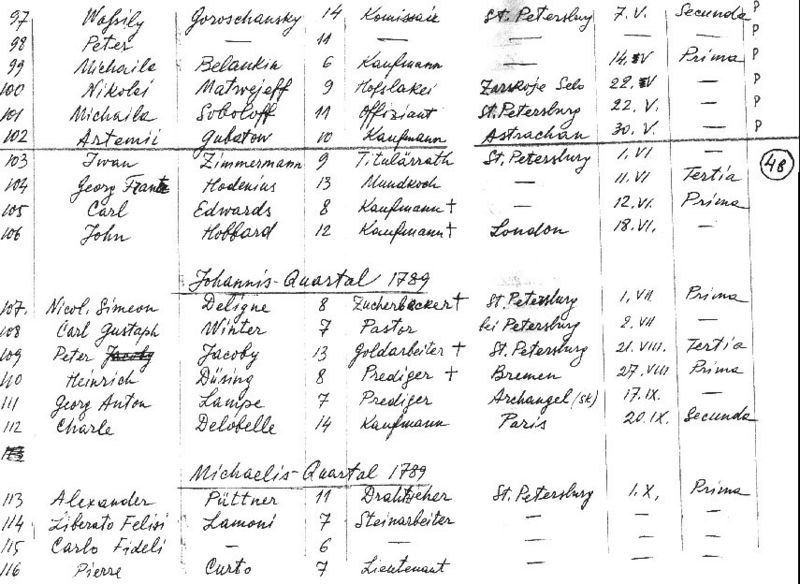 97 Wassily Goroschansky 14 Komissair St. Petersburg 7. V. Secunda P
98 Peter — 11 — — — — P
99 Michaila Belankin 6 Kaufmann — 14. V Prima P
100 Nikolai Matwejeff 9 Hofslakei Zarskoje Selo 22. V — P
101 Michaila Soboloff 11 Offiziant St. Petersburg 22. V. — P
102 Artemii Gubatow 10 Kaufmann Astrachan 30. V. — P
103 Iwan Zimmermann 9 Titulärrath St. Petersburg 1. VI —
104 Georg Frantz Hodenius 13 Mundkoch — 11. VI Tertia 48
105 Carl Edwards 8 Kaufmann † — 12. VI. Prima
106 John Hobbard 12 Kaufmann † London 18. VI. —
Johannis-Quartal 1789
107. Nicol. Simeon Deligne 8 Zuckerbäcker † St. Petersburg 1. VII Prima
108 Carl Gustaph Winter 7 Pastor bei Petersburg 2. VII —
109 Peter Jacoby Jacoby 13 Goldarbeiter † St. Petersburg 21. VIII. Tertia
110 Heinrich Düsing 8 Prediger † Bremen 27. VIII Prima
111 Georg Anton Lampe 7 Prediger Archangel (sk) 17. IX. —
112 Charle Delobelle 14 Kaufmann Paris 20. IX. Secunda
Michaelis-Quartal 1789
113 Alexander Püttner 11 Drahtzieher St. Petersburg 1. X. Prima
114 Liberato Felisi Lamoni 7 Steinarbeiter — — —
115 Carlo Fideli — 6 — — — —
116 Pierre Curto 7 Lieutenant — — —